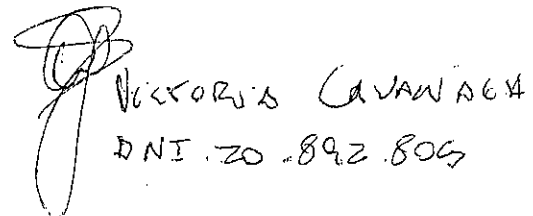 VICTORIA CAVANAGH
DNI.20.892.805